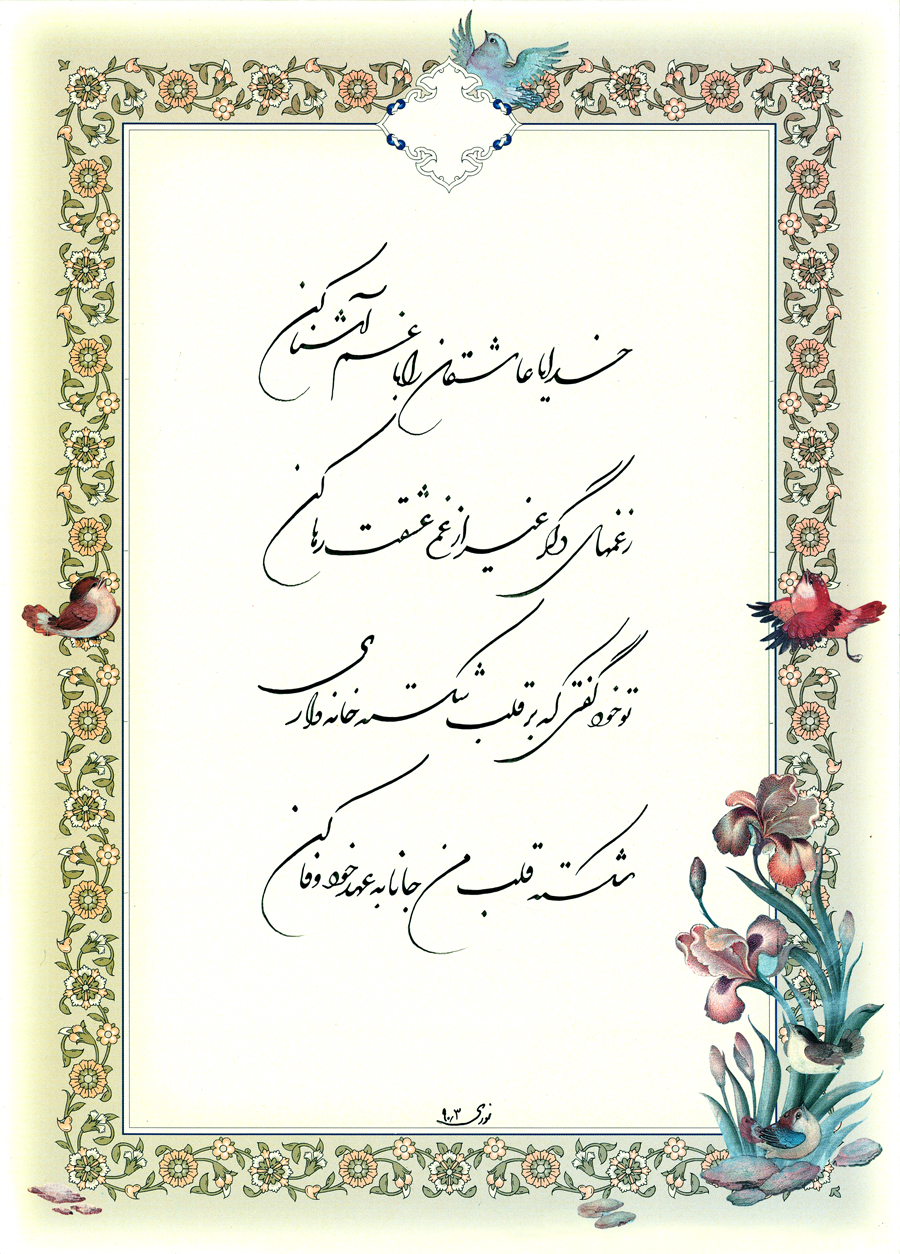 خدایا عاشقان را با غم آشنا کن
ز غمهای دگر غیر از غم عشقت رها کن
تو خود گفتی که بر قلب شکسته خانه داری
شکسته قلب من جانا به عهد خود وفا کن
نوری ۹۰/۳